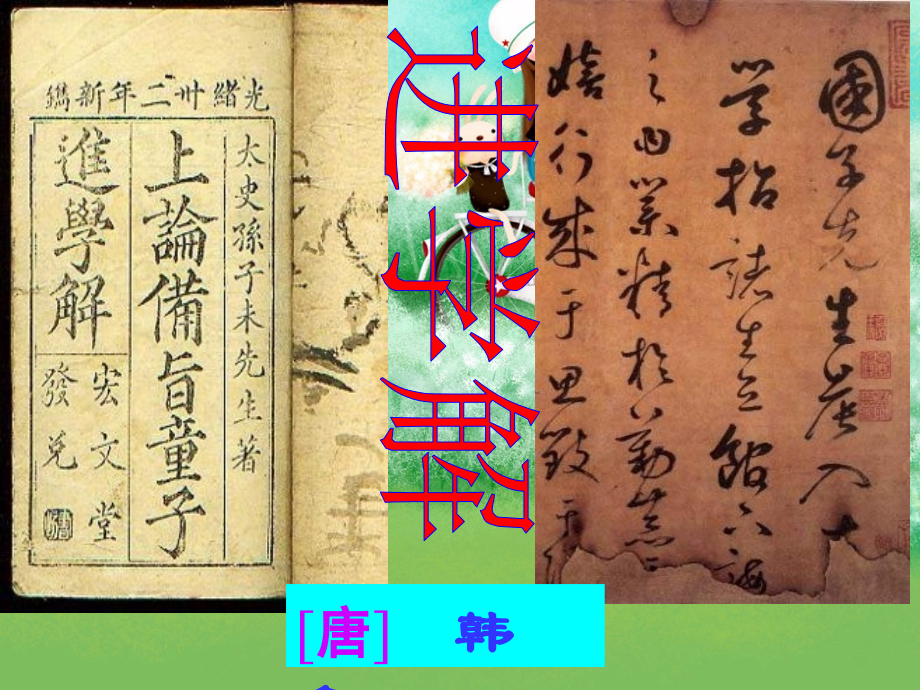 光緒卅二年新鐫
太史孫子未先生著
上論備旨童子
進學解
宏文堂
發兌
进学解
國子先生晨入太
學招諸生立館下誨
之曰業精於勤荒于
嬉行成于思毀于
[唐] 韩